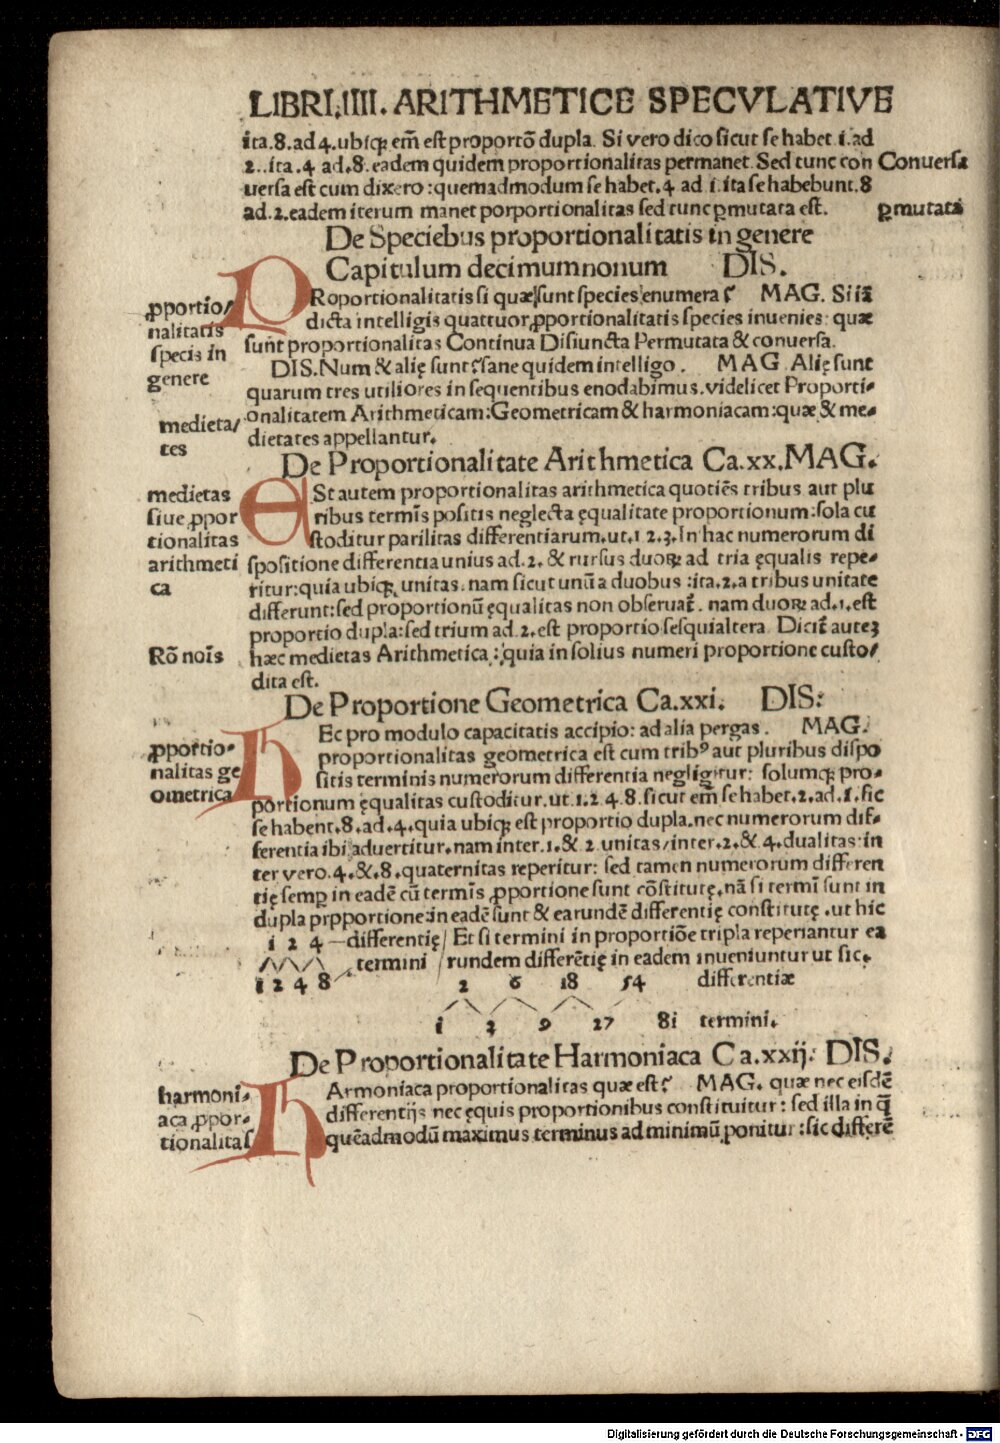 LIBRI.IIII. ARITHMETICE SPECVLATIVE
ita.8.ad 4.ubiqꝫ em̄ est proportō dupla. Si vero dico sicut se habet 1.ad
2..ita.4 ad.8.eadem quidem proportionalitas permanet. Sed tunc con
Conuersa
uersa est cum dixero:quemadmodum se habet.4 ad 1.ita se habebunt.8
ad.2.eadem iterum manet porportionalitas sed tunc ꝑmutata est.
ꝑmutata
De Speciebus proportionalitatis in genere
Capitulum decimumnonum DIS.
ꝓportio/
nalitatis
specis in
genere
PRoportionalitatis si quæ sunt species enumera? MAG. Si iā
dicta intelligis quattuor ꝓportionalitatis species inuenies: quæ
sunt proportionalitas Continua Disiuncta Permutata & conuersa.
DIS.Num & alię sunt? sane quidem intelligo. MAG. Alię sunt
quarum tres utiliores in sequentibus enodabimus.videlicet Proporti-
medieta/
tes
onalitatem Arithmeticam:Geometricam & harmoniacam:quæ & me-
dietates appellantur.
De Proportionalitate Arithmetica Ca.xx.MAG.
medietas
siue ꝓpor
tionalitas
arithmeti
ca
ESt autem proportionalitas arithmetica quotiēs tribus aut plu
ribus termīs positis neglecta ęqualitate proportionum:sola cu
stoditur parilitas differentiarum.ut.1 2.3.In hac numerorum di
spositione differentia unius ad.2. & rursus duoꝝ ad tria ęqualis repe-
ritur:quia ubiqꝫ unitas.nam sicut unū a duobus :ita.2.a tribus unitate
differunt:sed proportionū ęqualitas non obseruat̄. nam duoꝝ ad.1.est
proportio dupla:sed trium ad.2.est proportio sesquialtera. Dicit̄ auteꝫ
Rō noīs
hæc medietas Arithmetica:quia in solius numeri proportione custo/
dita est.
De Proportione Geometrica Ca.xxi. DIS:
ꝓportio-
nalitas ge
ometrica
HEc pro modulo capacitatis accipio: ad alia pergas. MAG.
proportionalitas geometrica est cum tribꝰ aut pluribus dispo
sitis terminis numerorum differentia negligitur: solumqꝫ pro-
portionum ęqualitas custoditur.ut.1.2.4.8.sicut em̄ se habet.2.ad.1.sic
se habent.8.ad.4.quia ubiqꝫ est proportio dupla.nec numerorum dif-
ferentia ibi aduertitur.nam inter.1.& 2 unitas/inter.2.& 4.dualitas:in
ter vero.4.&.8.quaternitas reperitur: sed tamen numerorum differen
tię semꝑ in eadē cū termīs ꝓportione sunt cōstitutę.nā si termī sunt in
dupla prpportione:in eadē sunt & earundē differentię constitutę.ut hic
1 2 4 —differentię/ Et si termini in proportiōe tripla reperiantur ea
.termini / rundem differētię in eadem inueniuntur ut sic.
1 2 4 8
2 6 18 54 differentiæ
1 3 9 27 81 termini.
De Proportionalitate Harmoniaca Ca.xxij. DIS.
harmoni-
aca ꝓpor-
tionalitas
HArmoniaca proportionalitas quæ est? MAG. quæ nec eisdē
differentijs nec ęquis proportionibus constituitur: sed illa in q̄
quēadmodū maximus terminus ad minimū ponitur:sic differē
Digitalisierung gefördert durch die Deutsche Forschungsgemeinschaft - DFG